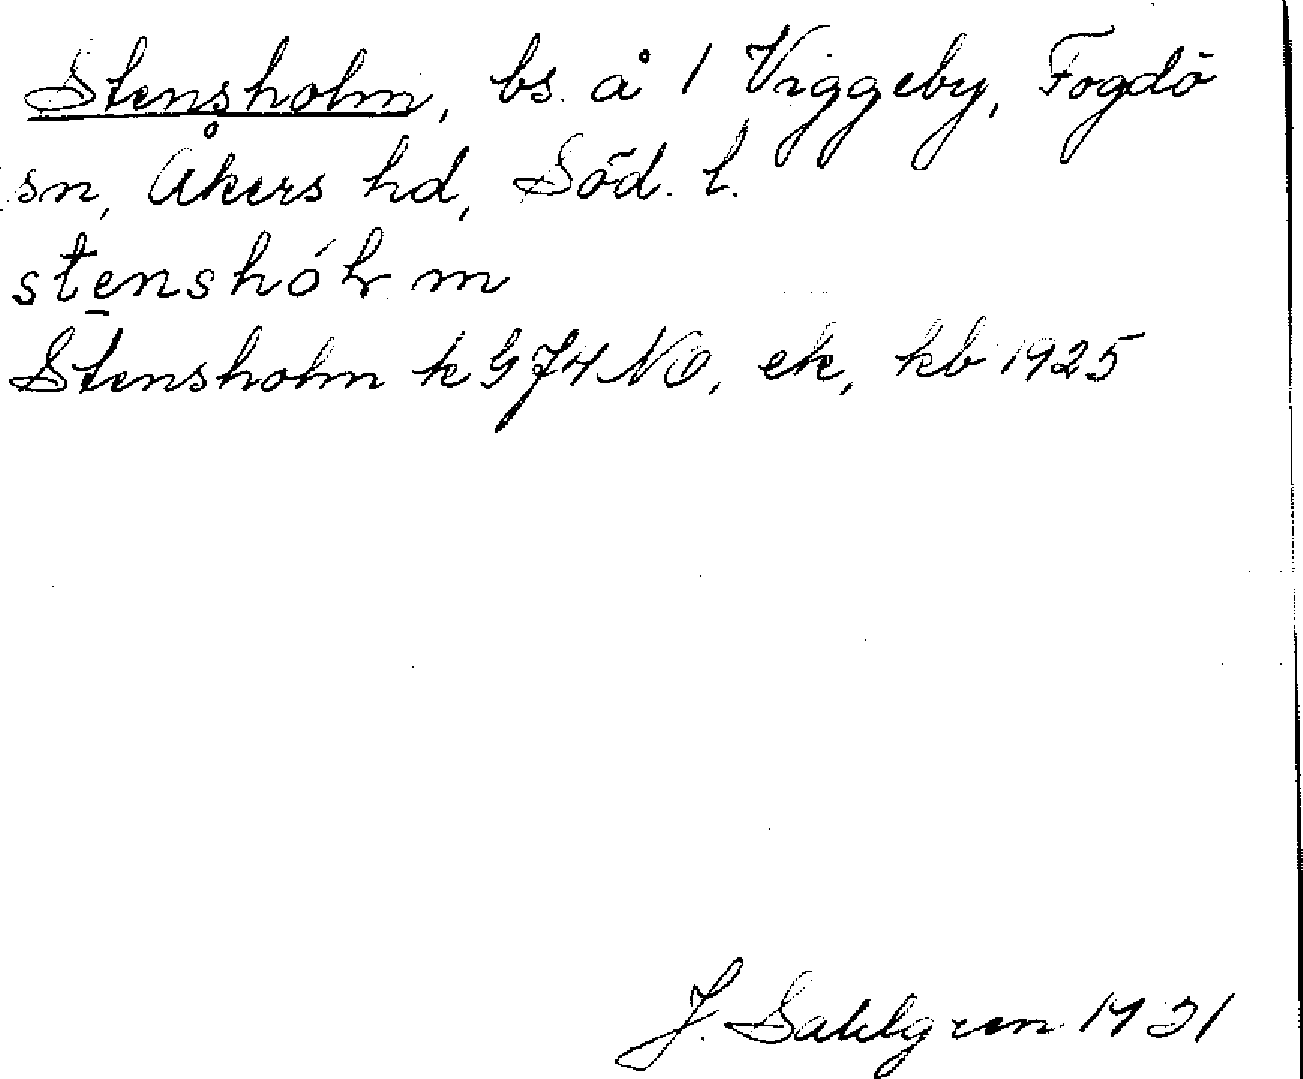 Stensholm, bs. å 1 Viggeby, Fogdö
sn, Åkers hd, Söd. l.
Stensholm k G74 NO, ek, kb 1925
J. Sahlgren 1931